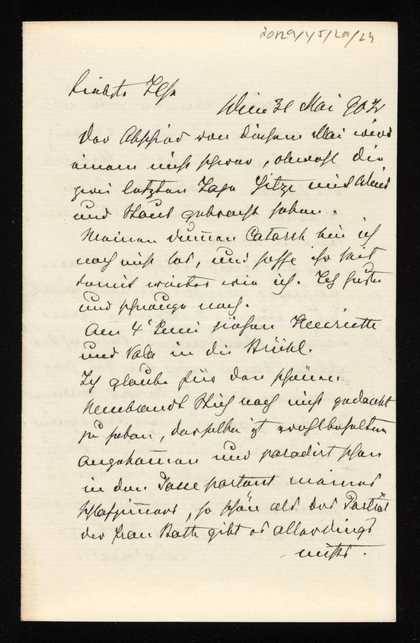 Liebste Ilse
Wien 31 Mai 902
Der Abschied von diesem Mai wird
einem nicht schwer, obwohl die
zwei letzten Tage Hitze und Wind
und Staub gebracht haben.
Meinen dummen Catarrh bin ich
noch nicht los, und hoffe Ihr seid
damit weiter wie ich. Ich huste
und
Am 4ᵗ Juni ziehen Henriette
und in die Brühl.
Ich glaube für den schönen
Rembrandt Dich noch nicht gedankt
zu haben, derselbe ist wohlbehalten
angekommen und paradirt schon
in dem Passepartout meines
so schön als das Porträt
der Frau gibt es allerdings
nichts.